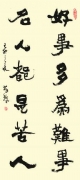 好事多為難事
名人是苦人